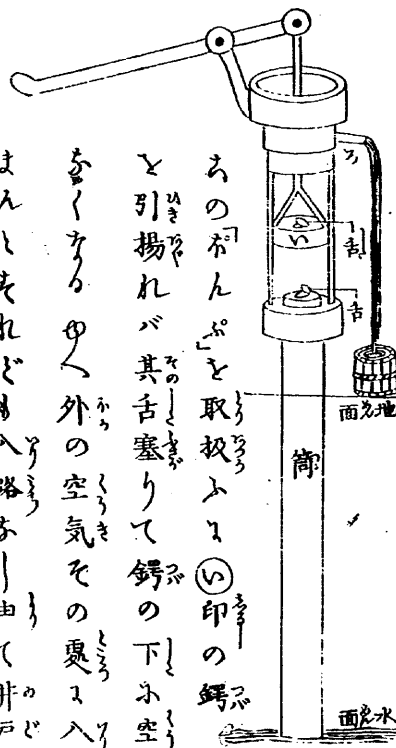 ろ
い
舌
舌
地面
筒
水面
この「ぽんぷ」を取扱ふに㋑印の鍔
を引揚れバ其舌塞りて鍔の下に空
なくなるゆへ外の空気その處に入
まんとすれども入路なし由て井戸